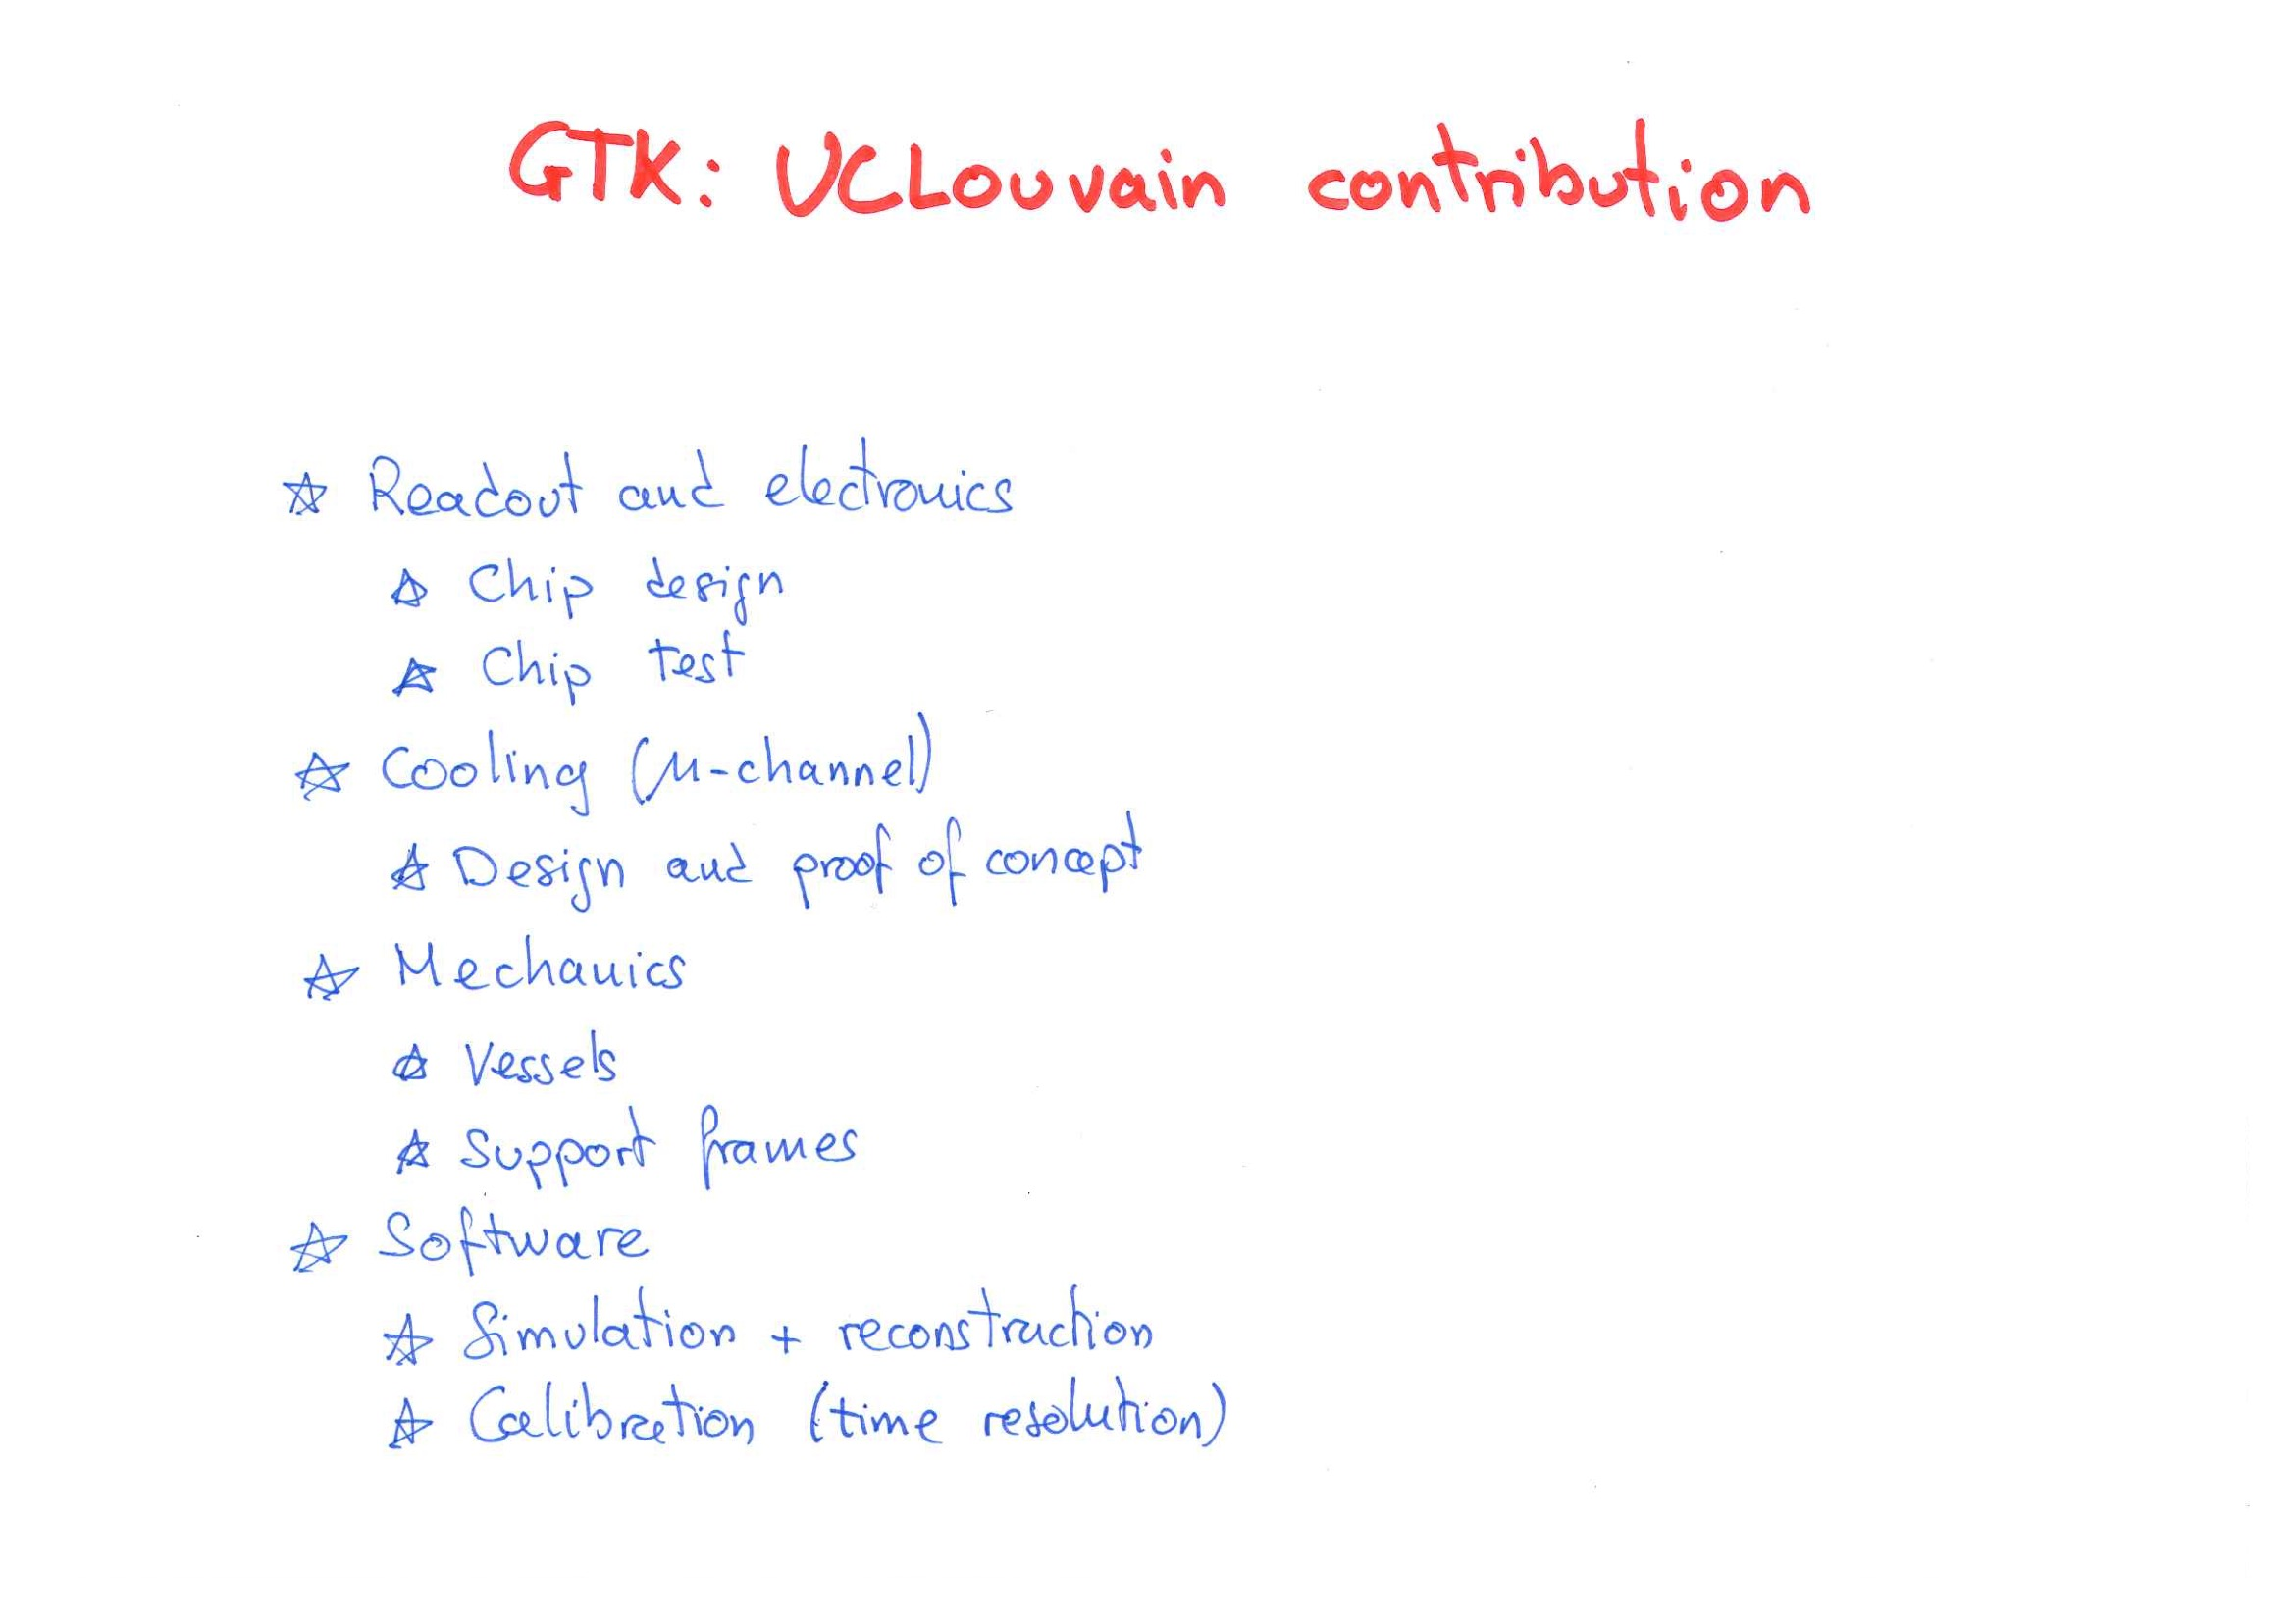 GTK: UCLouvain contribution
☆ Readout and electronics
☆ Chip design
☆ Chip test
☆ Cooling (μ-channel)
☆ Design and proof of concept
☆ Mechanics
☆ Vessels
☆ Support frames
☆ Software
☆ Simulation + reconstruction
☆ Calibration (time resolution)